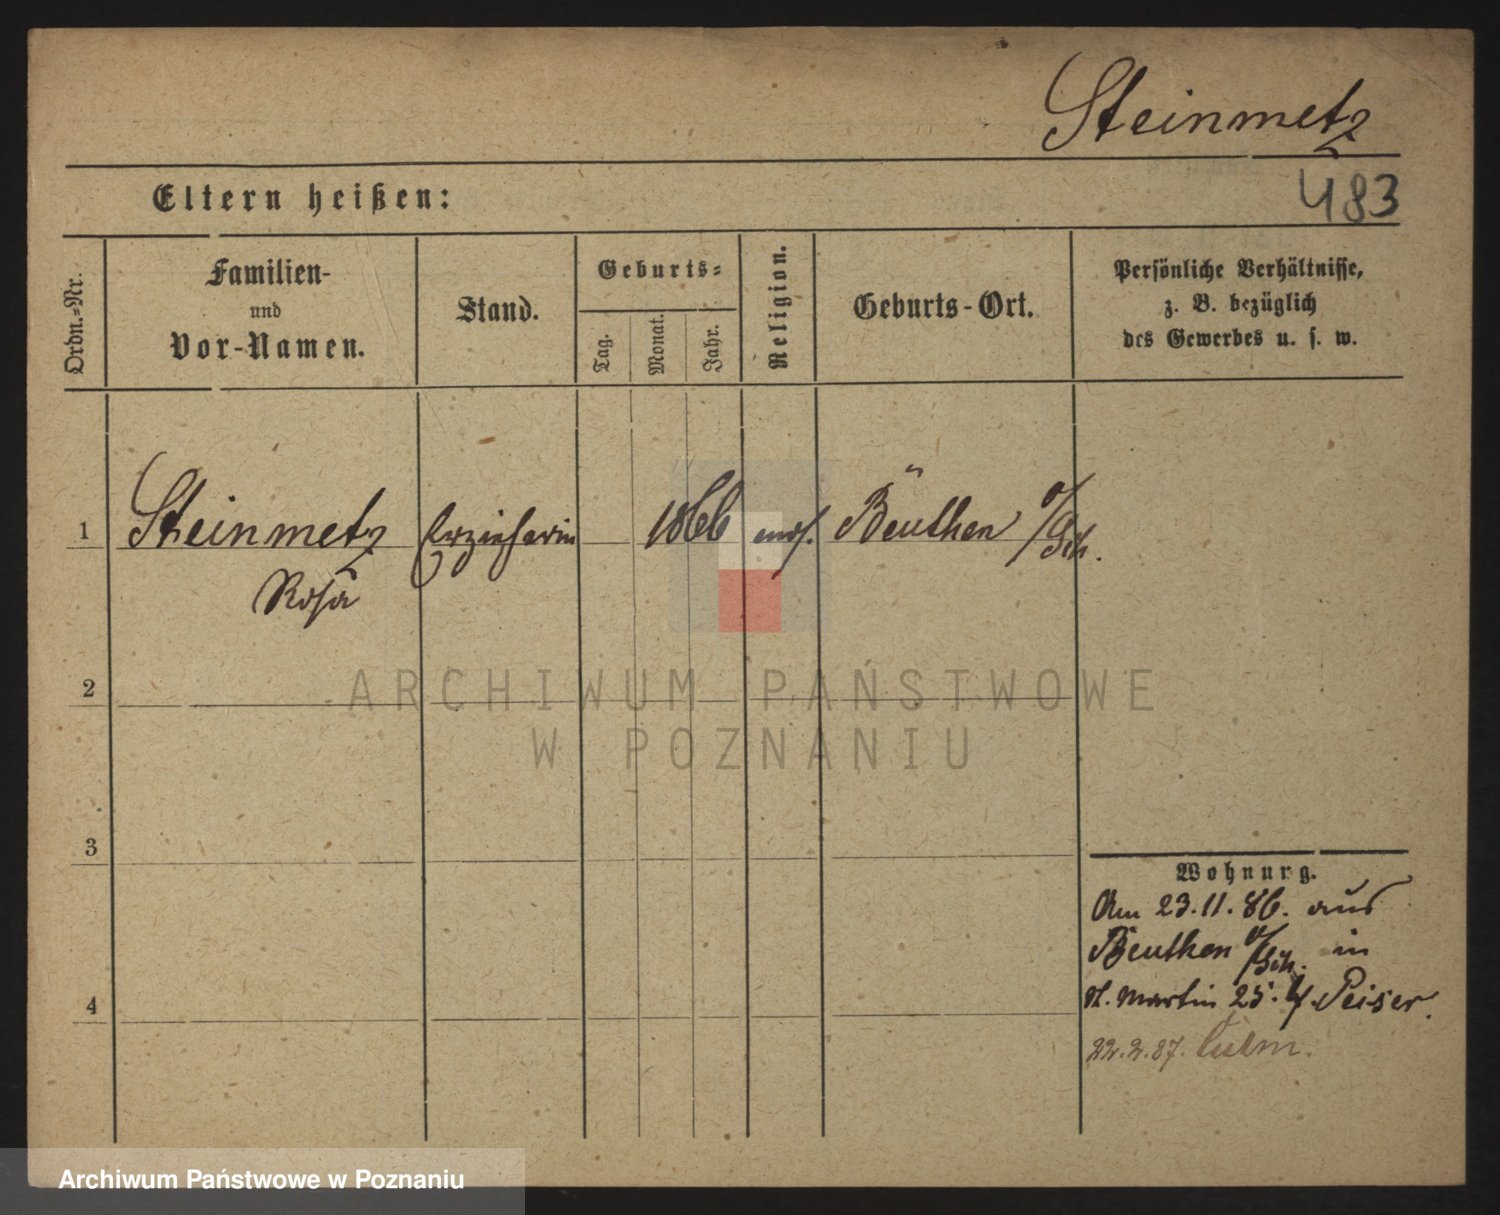 Steinmetz
483
Eltern heißen:
Ordn.-Nr.
Familien-
und
Vor-Namen.
Stand.
Geburts-
Tag.
Monat.
Jahr.
Religion.
Geburts-Ort.
Persönliche Verhältnisse,
z. B. bezüglich
des Gewerbes u. s. w.
1 Steinmetz Erzieherin 1866 mos. Beuthen O/Sch.
Rosa
2
ARCHIWUM PAŃSTWOWE
W POZNANIU
3
Wohnung.
Am 23.11.86. aus
Beuthen O/Sch. in
St. Martin 25. b/ Peiser.
4
22.2.87. Culm.
Archiwum Państwowe w Poznaniu